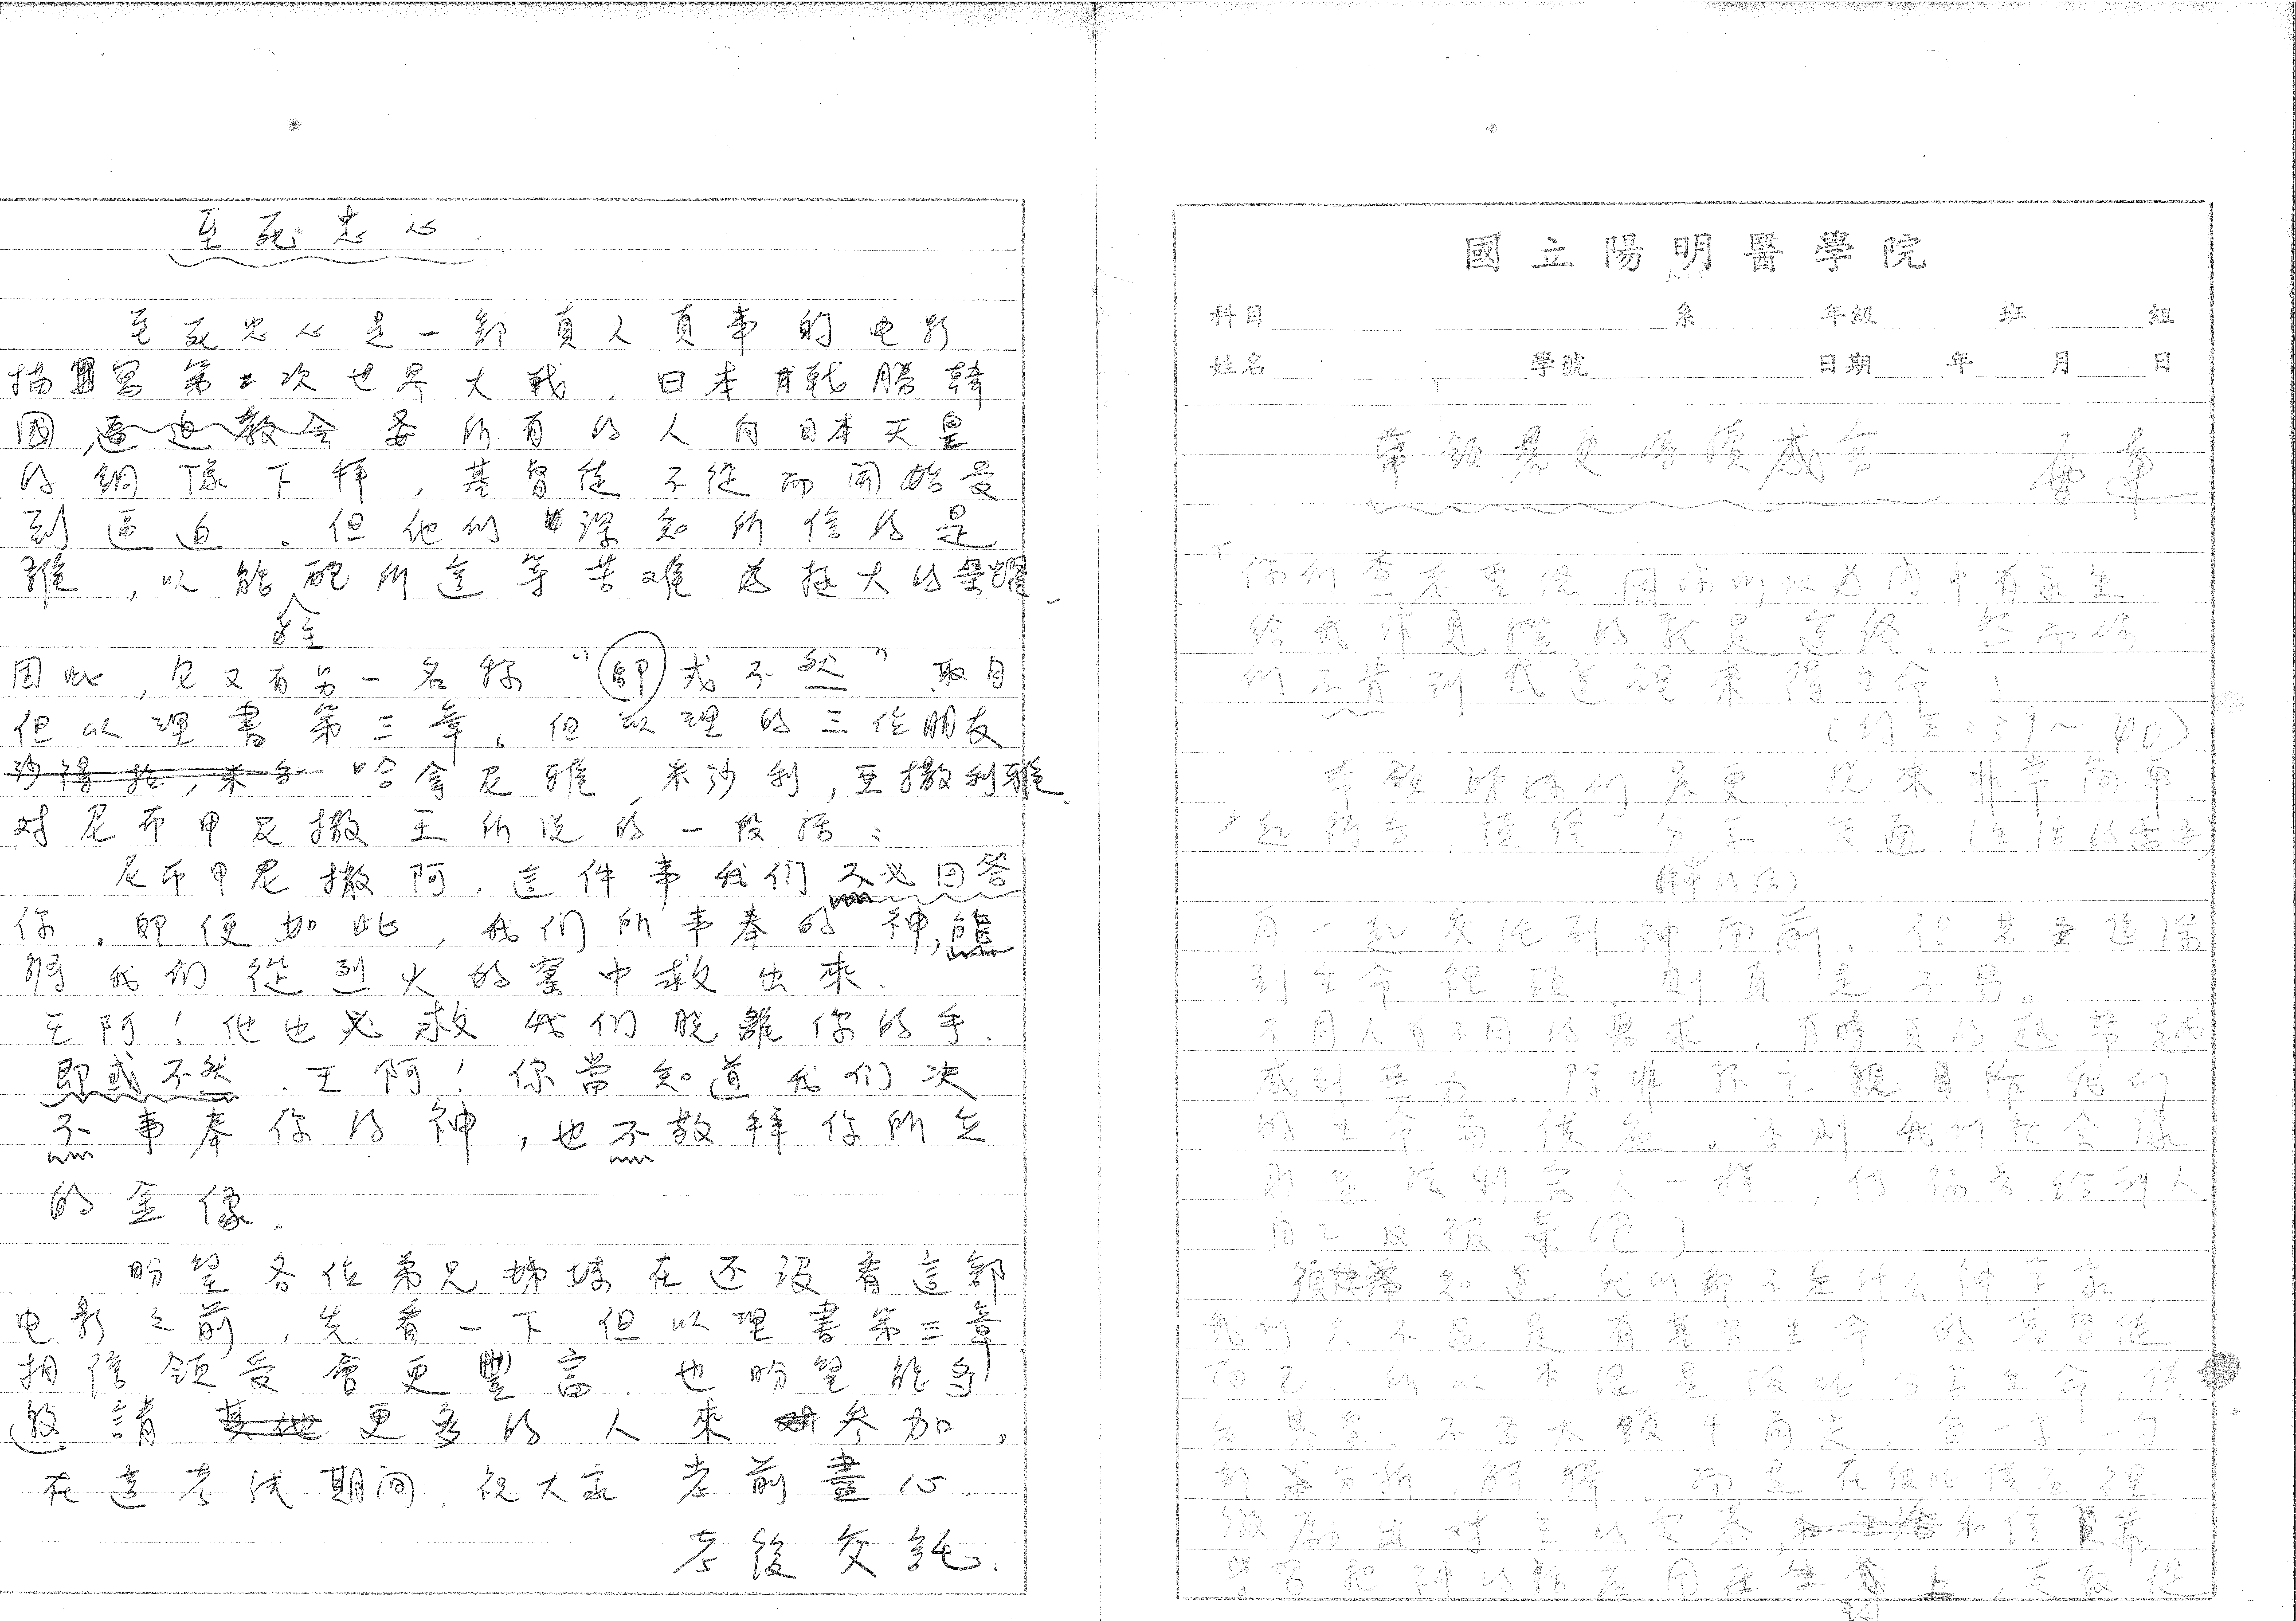 至死忠心.
至死忠心是一部真人真事的电影
描寫第二次世界大戰,日本戰勝韓
國,逼迫教会要所有的人向日本天皇
的銅像下拜,基督徒不從而開始受
到逼迫。但他们深知所信的是
誰,以能為主配所這等苦难為極大的榮耀.
因此,它又有另一名称"即或不然"取自
但以理書第三章。但以理的三位朋友
哈拿尼雅,米沙利,亞撒利雅
对尼布甲尼撒王所说的一段話:
尼布甲尼撒阿,這件事我们不必回答
你.即便如此,我们所事奉的神,能
將我们從烈火的窯中救出來.
王阿!他也必救我们脫離你的手.
即或不然.王阿!你當知道我们决
不事奉你的神,也不敬拜你所立
的金像.
盼望各位弟兄姊妹在还沒看這部
电影之前,先看一下但以理書第三章
相信領受會更豐富.也盼望能多
邀請更多的人來參加。
在這考試期间,祝大家考前盡心.
考後交託.
國立陽明醫學院
科目 系 年級 班 組
姓名 學號 日期 年 月 日
帶領晨更
「你们查考聖经,因你们以为内中有永生
給我作見證的就是這经,然而你
们不肯到我這裡來得生命」
(约五:39~40)
帶領姊妹们晨更,说來非常简单.
一起禱告,讀经,分享,交通(生活的需要)
(神的話)
再一起交託到神面前.但若要進深
到生命裡頭,則真是不易。
不同人有不同的需求,有時真的越帶越
感到無力.除非主親自作我们
的生命供應。否則我们就会像
那些法利賽人一樣,传福音给别人
自己反被棄绝了
須知道我们都不是什么神学家,
我们只不過是有基督生命的基督徒
而已,所以查经是彼此分享生命,供
應基督,不要太鑽牛角尖,每一字一句
都分析,解釋,而是在彼此供應裡
激勵出对主的愛慕,和信靠
学習把神的話应用在生活上,支取從